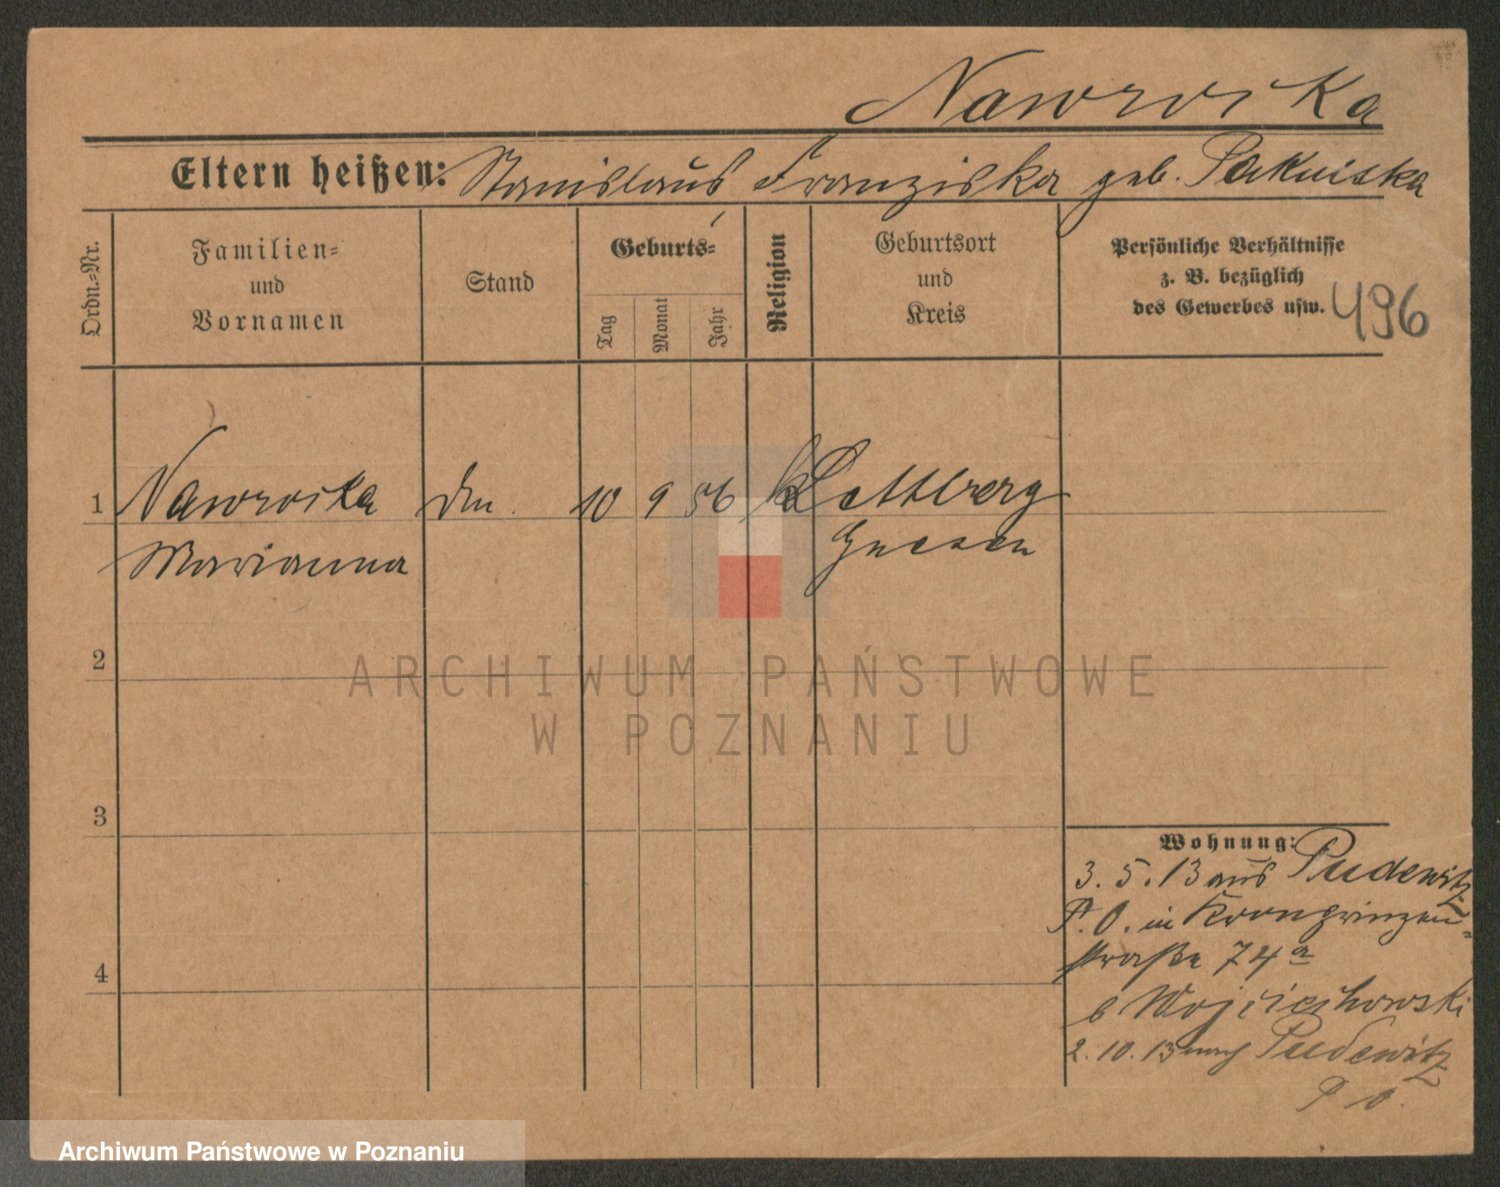 Nawroika
Eltern heißen: Stanislaus Franziska geb.
Ordn.=Nr.
Familien=
und
Vornamen
Stand
Geburts=
Tag
Monat
Jahr
Religion
Geburtsort
und
Kreis
Persönliche Verhältnisse
z. B. bezüglich
des Gewerbes usw. 496
1 Nawroika 10 9 56 k Lettberg
Marianna Gnesen
2
ARCHIWUM PAŃSTWOWE
W POZNANIU
3
Wohnung:
3. 5. 13 aus Pudewitz
P. O. in Kronprinzen=
4
straße 74a
b Wojciechowski
2. 10. 13 nach Pudewitz
P O.
Archiwum Państwowe w Poznaniu